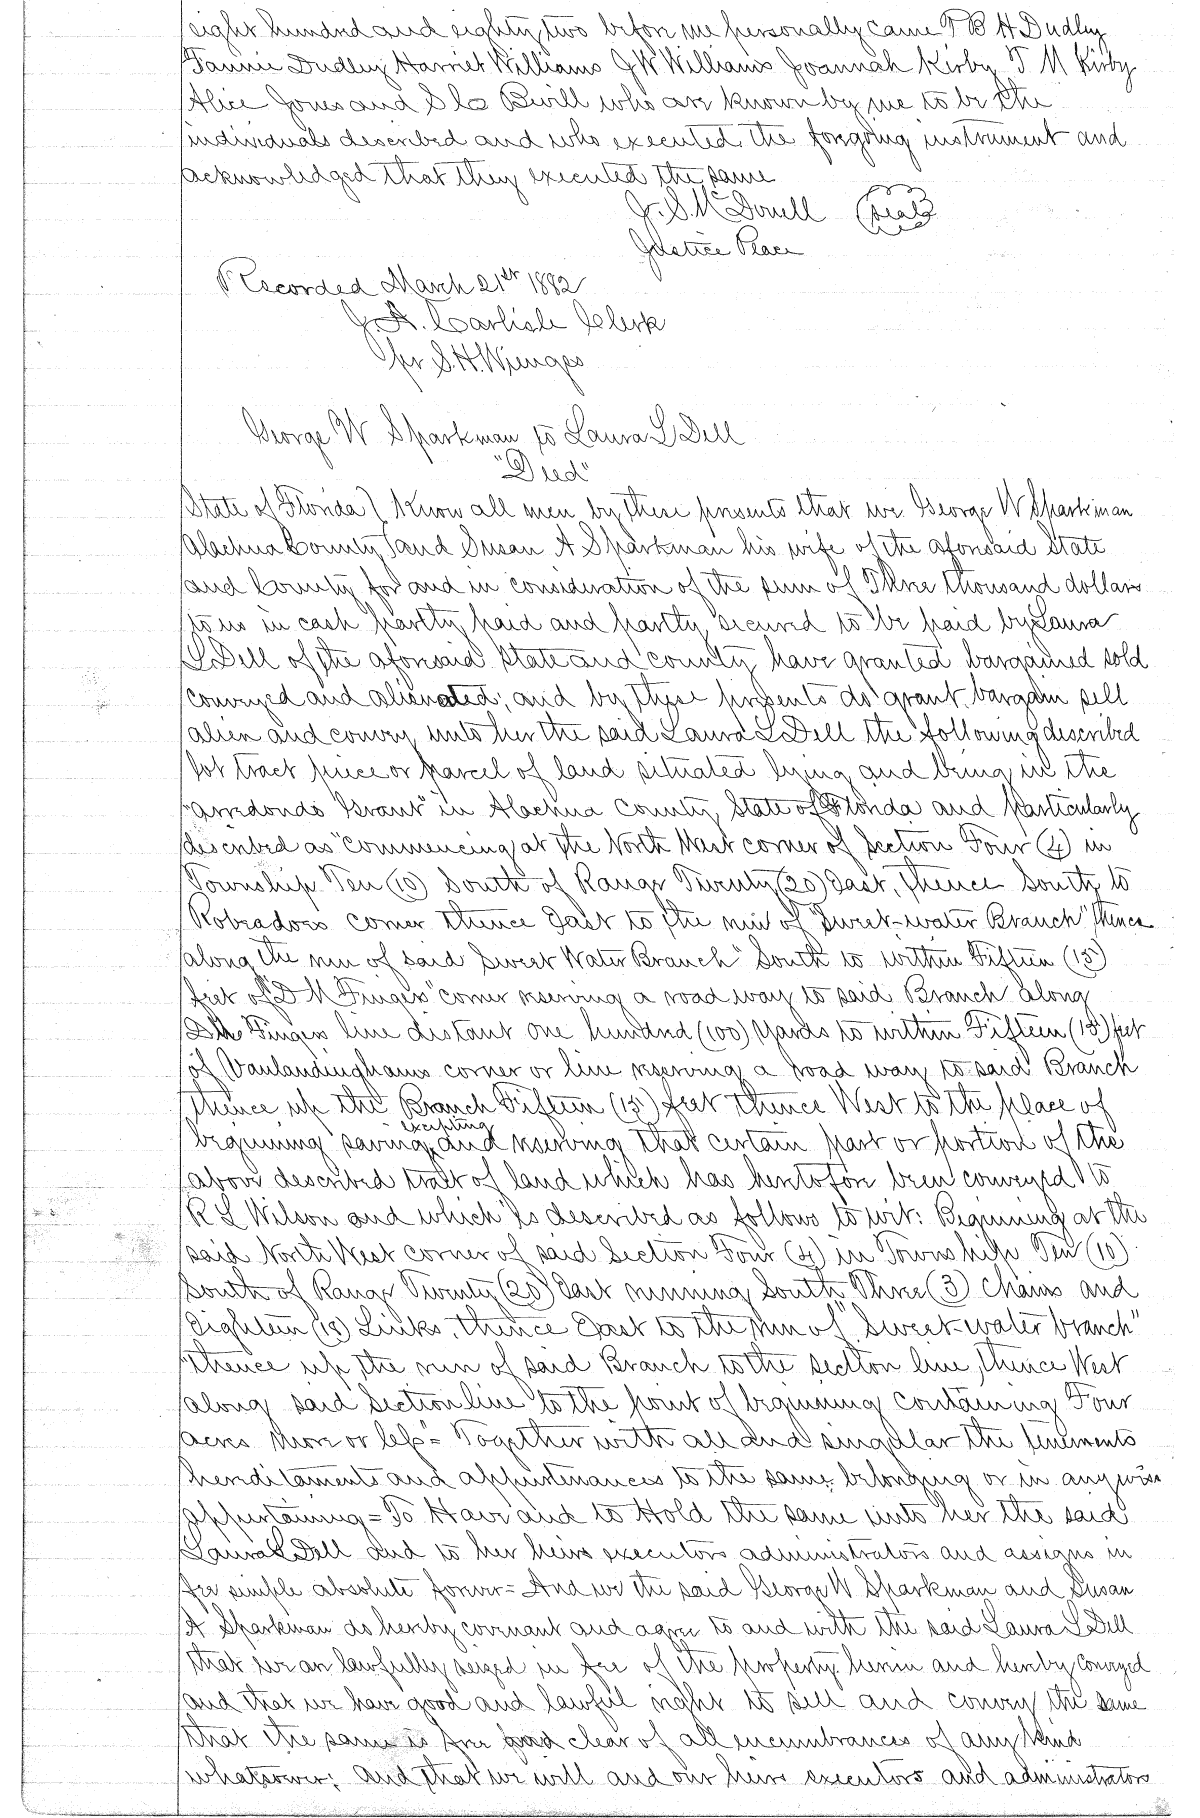 eight hundred and eighty two before me personally came T B H Dudley
Fannie Dudley Harriet Williams J W Williams Joannah Kirby T M Kirby
Alice Jones and S Bevill who are known by me to be the
individuals described and who executed the foregoing instrument and
acknowledged that they executed the same
J. S. McDowell (Seal)
Justice Peace
Recorded March 21st 1882
J. A. Carlisle Clerk
pr S. H. Wienges
George W Sparkman to Laura L Dell
"Deed"
State of Florida } Know all men by these presents that we George W Sparkman
Alachua County } and Susan A Sparkman his wife of the aforesaid State
and County for and in consideration of the sum of Three thousand dollars
to us in cash partly paid and partly secured to be paid by Laura
L Dell of the aforesaid State and county have granted bargained sold
conveyed and alienated, and by these presents do grant, bargain sell
alien and convey unto her the said Laura L Dell the following described
lot tract piece or parcel of land situated lying and being in the
"Arredondo Grant" in Alachua County State of Florida and particularly
described as "commencing at the North West corner of Section Four (4) in
Township Ten (10) South of Range Twenty (20) East, thence South to
Robeadoes corner thence East to the run of "Sweet-water Branch" thence
along the run of said Sweet Water Branch" South to within Fifteen (15)
feet of "D M Fingers" corner reserving a road way to said Branch along
D M Fingers line distant one hundred (100) yards to within Fifteen (15) feet
of Vanlandinghams corner or line reserving a road way to said Branch
thence up the Branch Fifteen (15) feet thence West to the place of
beginning saving excepting and reserving that certain part or portion of the
above described tract of land which has heretofore been conveyed to
R L Wilson and which is described as follows to wit: Beginning at the
said North West corner of said Section Four (4) in Township Ten (10)
South of Range Twenty (20) East running South Three (3) Chains and
Eighteen (18) Links, thence East to the run of "Sweet-water branch"
"thence up the run of said Branch to the section line, thence West
along said Section line to the point of beginning containing Four
acres more or less = Together with all and singular the tenements
hereditaments and appurtenances to the same belonging or in any wise
appertaining = To Have and to Hold the same unto her the said
Laura L Dell and to her heirs executors administrators and assigns in
fee simple absolute forever = And we the said George W Sparkman and Susan
A Sparkman do hereby covenant and agree to and with the said Laura L Dell
that we are lawfully seized in fee of the property herein and hereby conveyed
and that we have good and lawful right to sell and convey the same
that the same is free and clear of all encumbrances of any kind
whatsoever; And that we will and our heirs executors and administrators